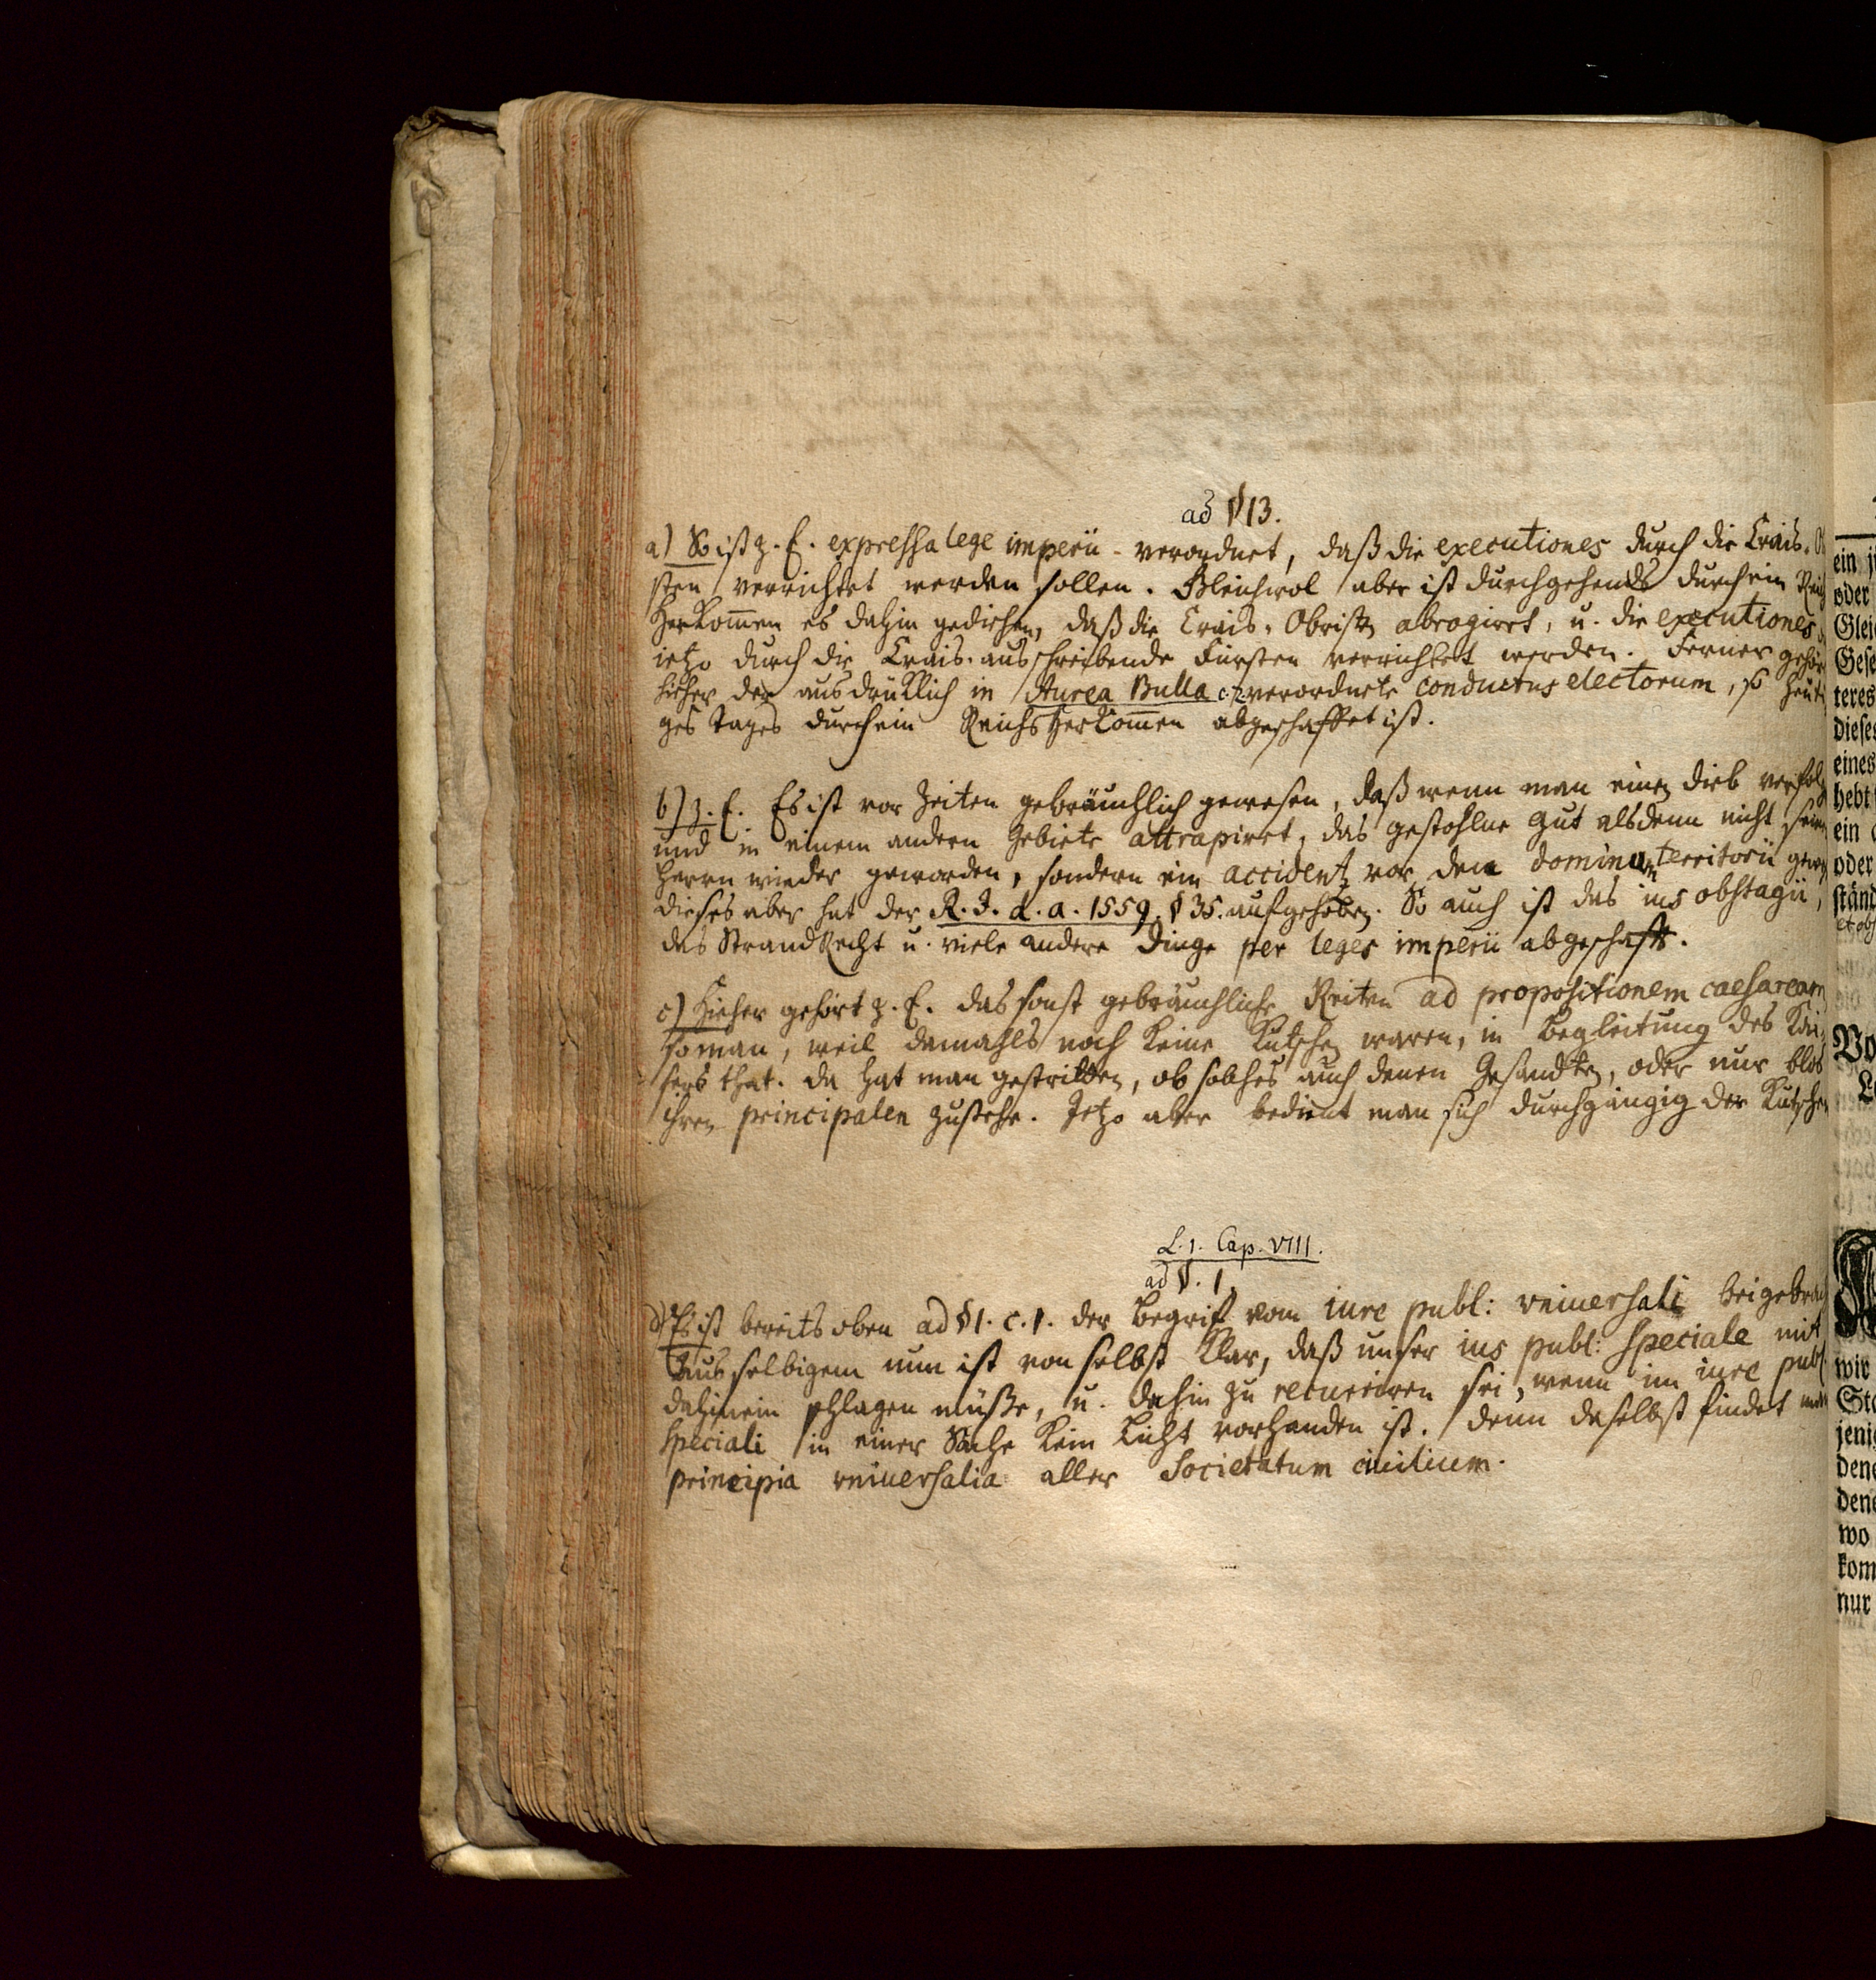 ad § 13.
a) So ist z. E. expressa lege imperii verordnet, daß die executiones durch die Crais-
sten verrichtet werden sollen. Gleichwol aber ist durchgehends durch ein Reich
Herkom̄en es dahin gediehen, daß die Crais-Obristen abrogirt, u. die executiones
ietzo durch die Crais-ausschreibende Fürsten verrichtet werden. Ferner gehör
hieher der ausdrüklich in Aurea Bulla verordnete conductus electorum, so heuti
ges Tages durch ein Reichs Herkom̄en abgeschaffet ist.
b) z. E. Es ist vor Zeiten gebräuchlich gewesen, daß wenn man einen Dieb verfol
und in einem andern Gebiete attrapirt, das gestohlne Gut alsdenn nicht seinem
Herrn wieder geworden, sondern ein accidentz vor den dominum territorii gewe
dieses aber hat der R. I. d. a. 1559. § 35. aufgehoben. So auch ist das ius obstagii,
das StrandRecht u. viele andere Dinge per leges imperii abgeschaft.
c) Hieher gehört z. E. das sonst gebräuchliche Reiten ad propositionem caesaream
so man, weil damahls noch keine Kutschen waren, in Begleitung des Kai-
sers that. Da hat man gestritten, ob solches auch denen Gesandten, oder nur blos
ihren principalen zustehe. Jetzo aber bedient man sich durchgängig der Kutschen
L. 1. Cap. VIII.
ad §. 1.
Es ist bereits oben ad § 1. c. 1. der Begrif vom iure publ: vniuersali beigebrach
Aus selbigem nun ist von selbst klar, daß unser ius publ: speciale mit
dahinein schlagen müße, u. dahin zu recurriren sei, wenn im iure publ.
speciali in einer Sache kein Licht vorhanden ist. Denn daselbst findet man
principia vniuersalia aller Societatum ciuilium.
ein j
oder
Glei
Gese
teres
dieses
eines
hebt
ein
oder
ständ
Vo
wir
Sta
jeni
den
den
wo
kom
nur